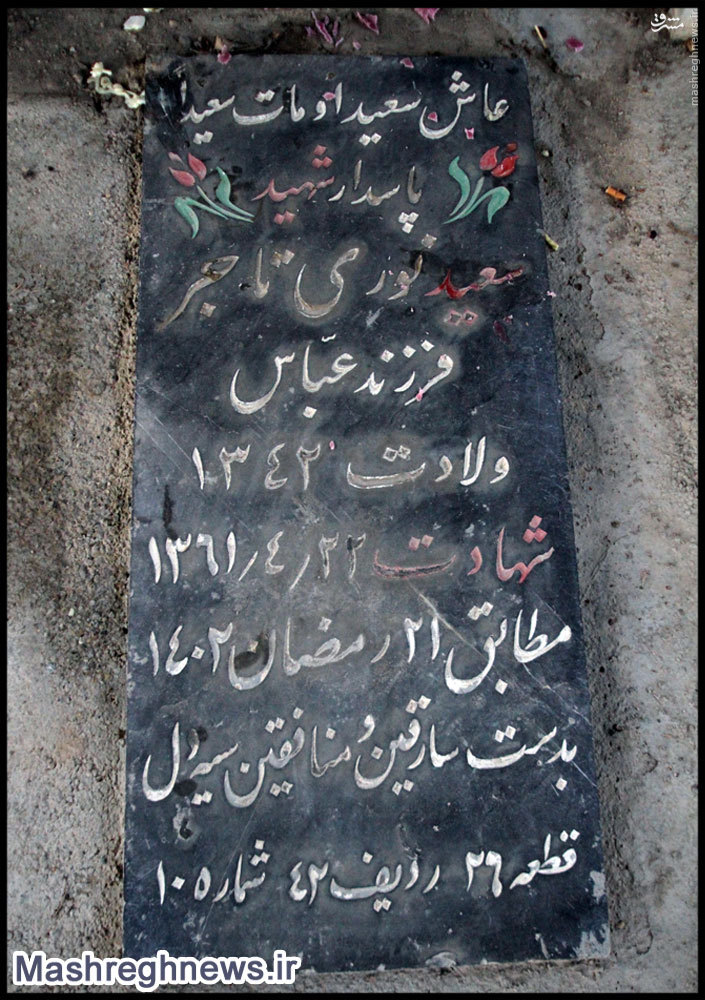 مشرق
mashreghnews.ir
عاش سعیدا و مات سعیدا
پاسدار شهید
سعید نوری تاجر
فرزند عبّاس
ولادت ۱۳۴۲
شهادت ۱۳۶۱/۴/۲۲
مطابق ۲۱ رمضان ۱۴۰۲
بدست سارقین و منافقین سیه دل
قطعه ۲۶ ردیف ۴۲ شماره ۱۰۵
Mashreghnews.ir